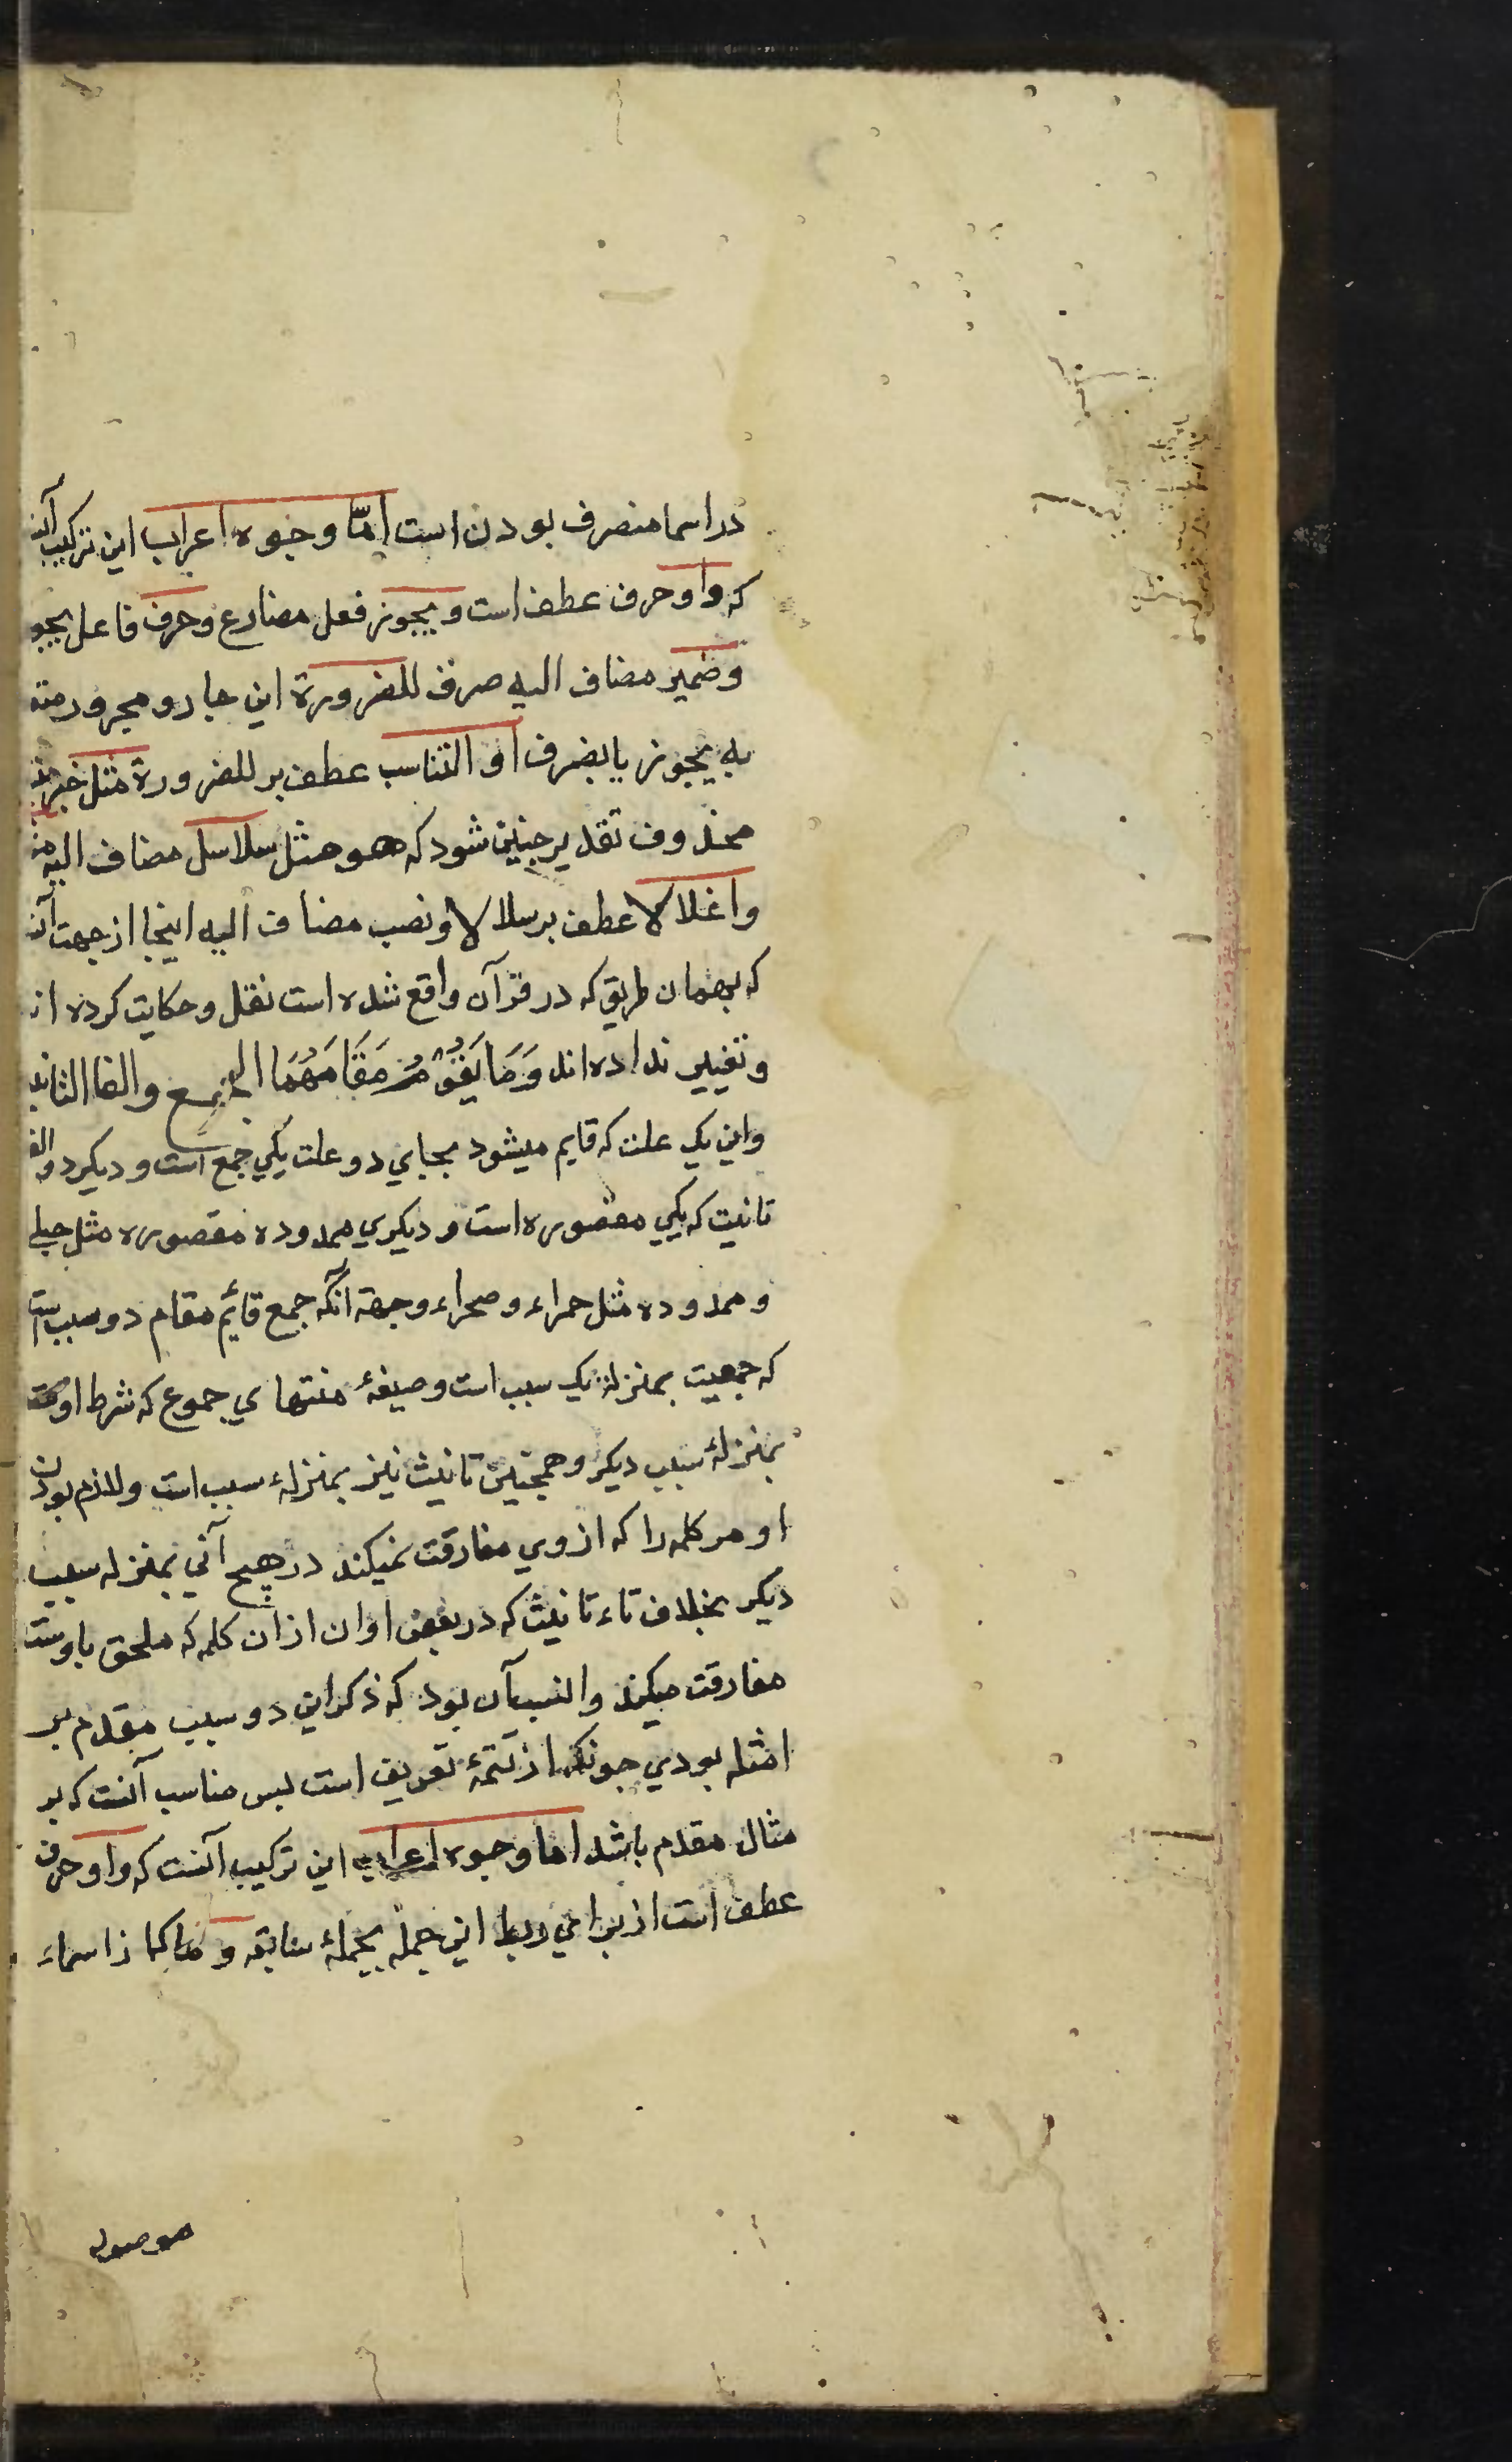 در اسما منصرف بودن است امّا وجوه اعراب این ترکیب آن
که واو حرف عطف است و یجوز فعل مضارع و صرف فاعل یجو
و ضمیر مضاف الیه صرف للضرورة این جار و مجرور
به یجوز یا بصرف او التناسب عطف بر للضرورة مثل خبر
محذوف تقدیر چنین شود که هو مثل سلاسل مضاف الیه
و اغلالا عطف بر سلالا و نصب مضاف الیه اینجا از جهت آن
که بهمان طریق که در قرآن واقع شده است نقل و حکایت کرده اند
و تغییر نداده اند وَمَا یَقُوْمُ مَقَامَهُمَا الجمع والفا التانیث
و این یک علت که قایم میشود بجای دو علت یکی جمع است و دیکر دو الف
تانیت که یکی مقصوره است و دیکری ممدوده مقصوره مثل حبلی
و ممدوده مثل حمراء و صحراء وجهه آنکه جمع قائم مقام دو سبب است
که جمعیت بمنزلهٔ یک سبب است و صیغهٔ منتهای جموع که شرط اوست
بمنزلهٔ سبب دیکر و همچنین تانیث نیز بمنزلهٔ سبب است و للزم بودن
او مر کلمه را که از وی مفارقت نمیکند در هیچ آنی بمنزله سبب
دیکر بخلاف تاء تانیث که در بعض اوان از ان کلمه که ملحق باوست
مفارقت میکند و انسب آن بود که ذکر این دو سبب مقدم بر
امثله بودی چونکه از تتمهٔ تعریف است پس مناسب آنست که بر
مثال مقدم باشد اما وجوه اعراب این ترکیب آنست که واو حرف
عطف است از برای ربط این جمله بجملهٔ سابقه و ما که از اسماء
موصوله